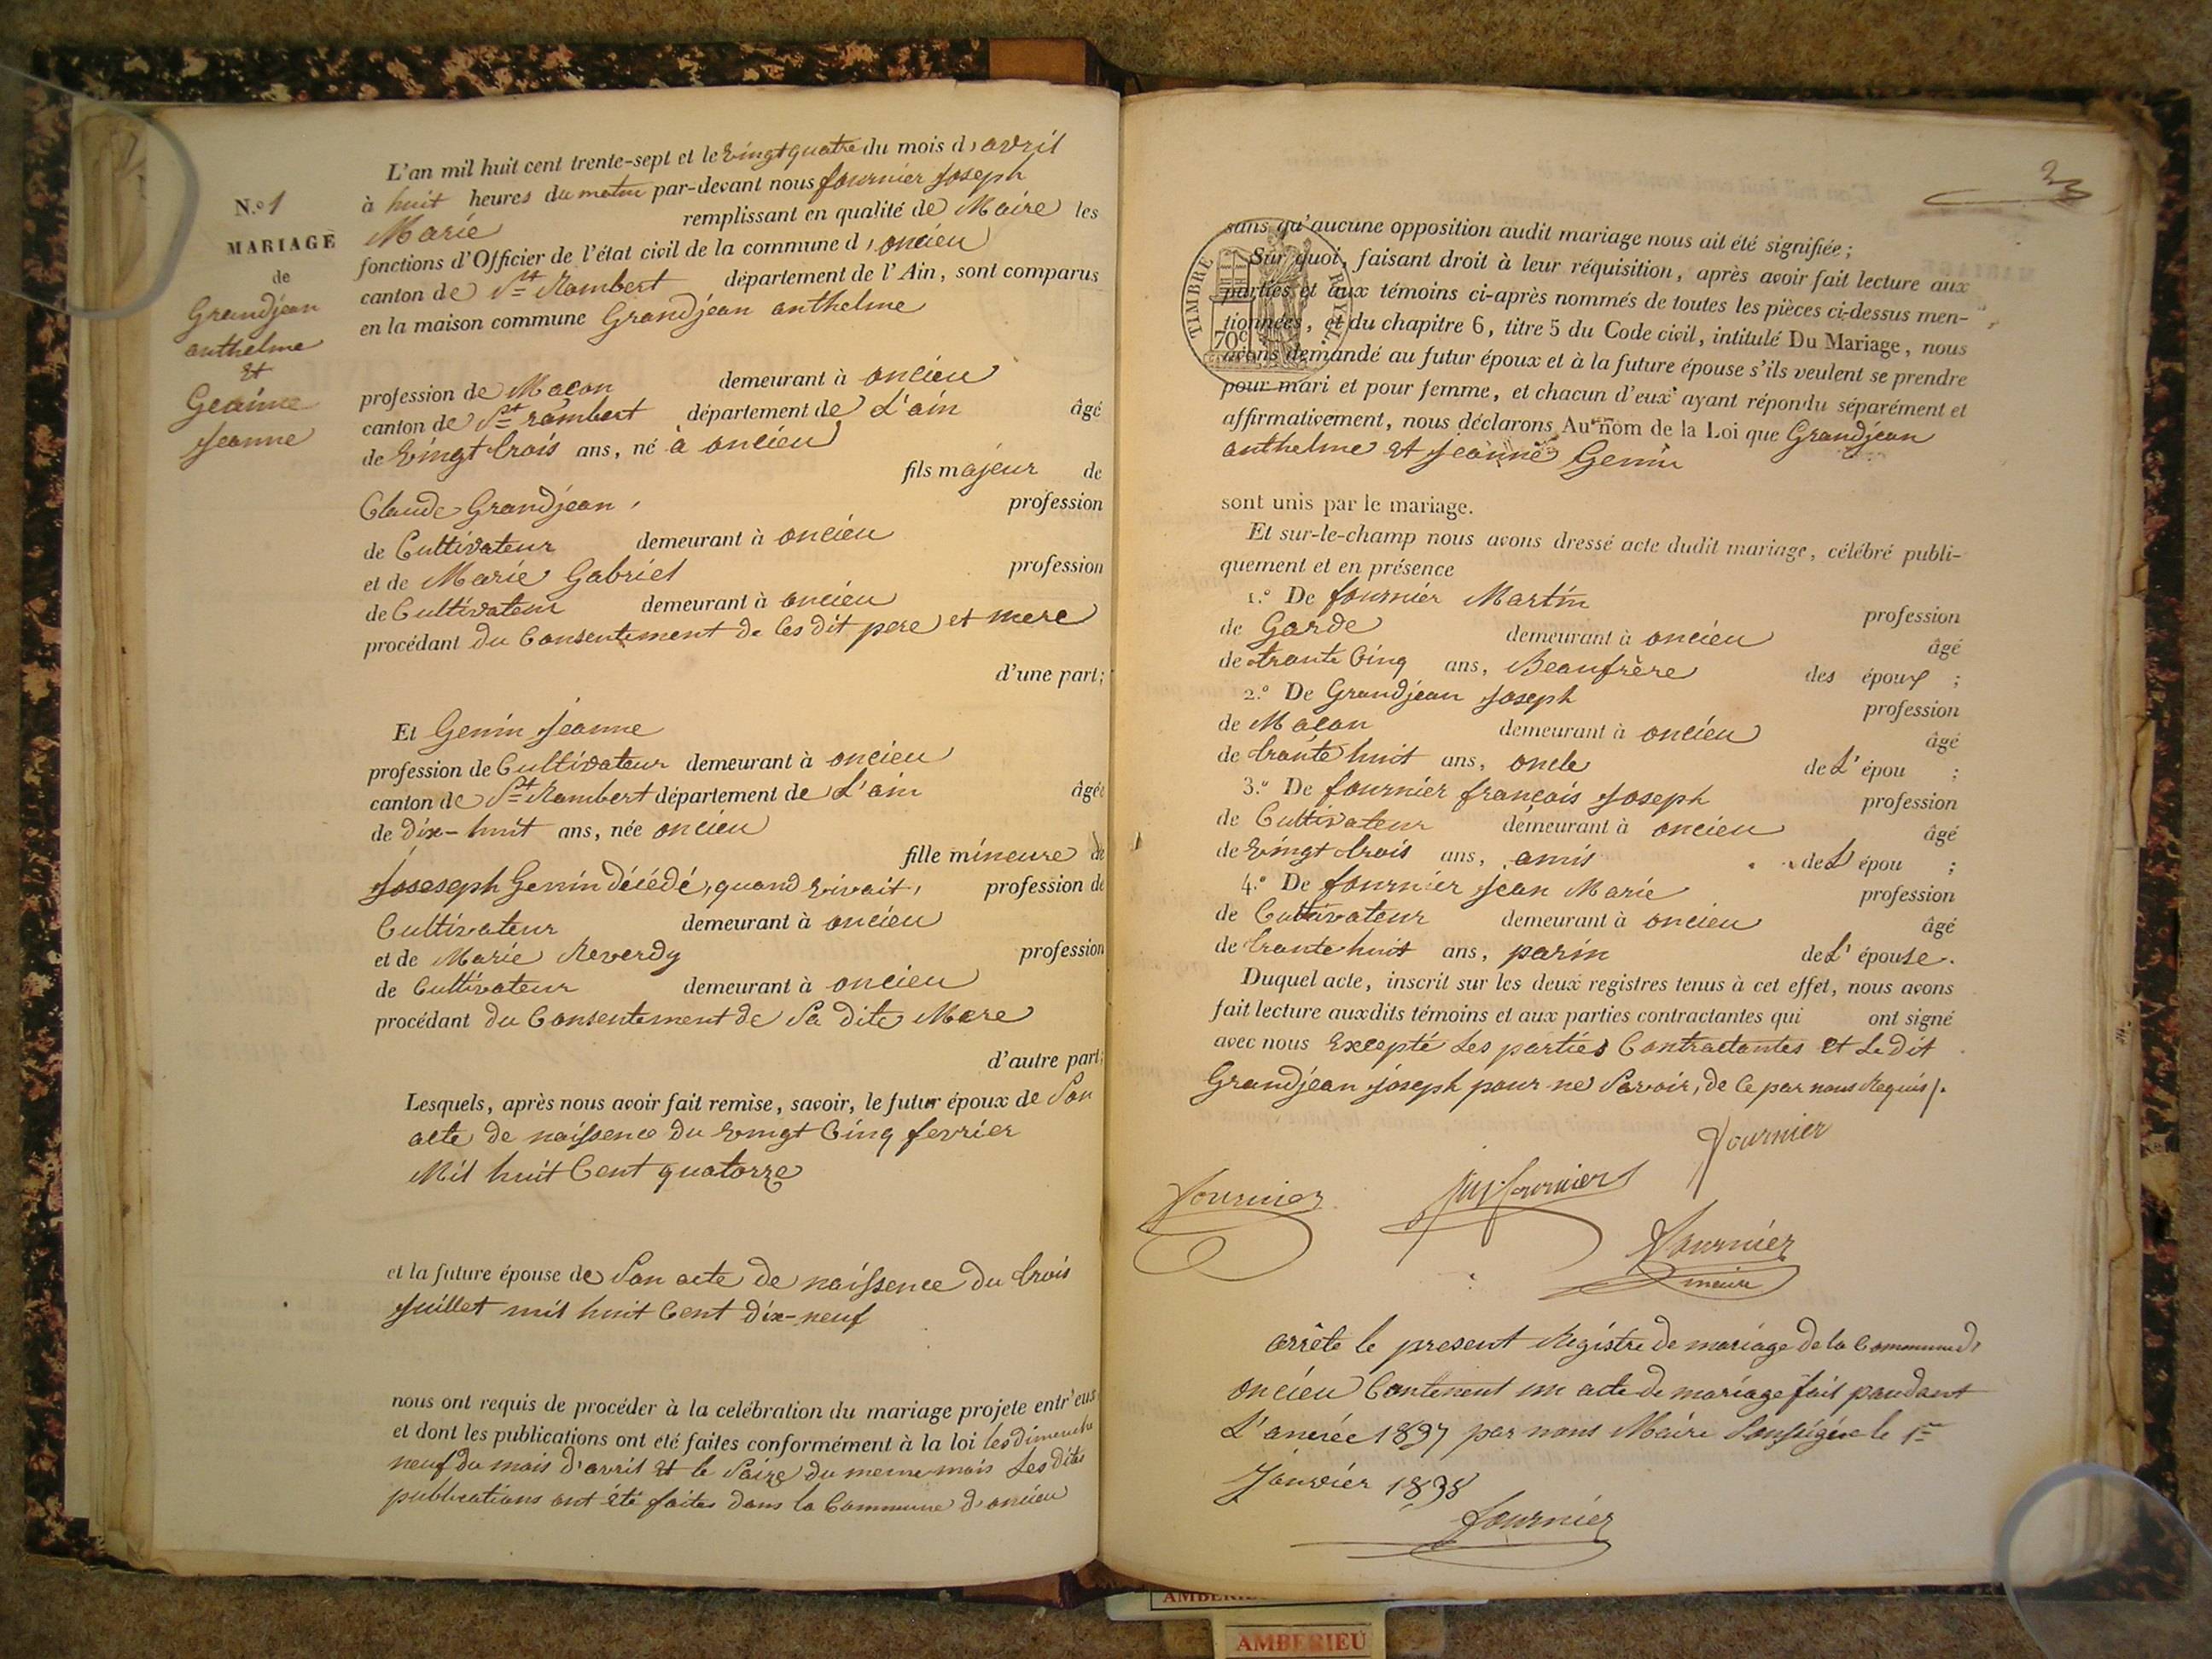 N.o 1
MARIAGE
de
Grandjean
anthelme
et
Jeanne
L'an mil huit cent trente-sept et le vingt quatre du mois d'avril
à huit heures du matin par-devant nous fournier Joseph
Marie remplissant en qualité de Maire les
fonctions d'Officier de l'état civil de la commune d'oncieu
canton de St Rambert département de l'Ain, sont comparus
en la maison commune Grandjean anthelme
profession de Maçon demeurant à oncieu
canton de St rambert département de L'ain âgé
de vingt trois ans, né à oncieu
fils majeur de
Claude Grandjean, profession
de Cultivateur demeurant à oncieu
et de Marie Gabriel profession
de Cultivateur demeurant à oncieu
procédant du Consentement de ces dit pere et mere
d'une part;
Et Genin Jeanne
profession de Cultivateur demeurant à oncieu
canton de St Rambert département de L'ain âgée
de dix-huit ans, née oncieu
fille mineure de
Joseseph Genin décédé, quand vivait, profession de
Cultivateur demeurant à oncieu
et de Marie Reverdy profession
de Cultivateur demeurant à oncieu
procédant du Consentement de Sa dite Mere
d'autre part;
Lesquels, après nous avoir fait remise, savoir, le futur époux de Son
acte de naissence du vingt Cinq fevrier
Mil huit Cent quatorze
et la future épouse de Son acte de naissence du trois
Juillet mil huit Cent dix-neuf
nous ont requis de procéder à la celébration du mariage projete entr'eux
et dont les publications ont été faites conformément à la loi les dimenche
neuf du mois d'avril et le Saize du meme mois Les dites
publications ont été faites dans la Commune d'oncieu
sans qu'aucune opposition audit mariage nous ait été signifiée;
Sur quoi, faisant droit à leur réquisition, après avoir fait lecture aux
parties et aux témoins ci-après nommés de toutes les pièces ci-dessus men-
tionnées, et du chapitre 6, titre 5 du Code civil, intitulé Du Mariage, nous
avons demandé au futur époux et à la future épouse s'ils veulent se prendre
pour mari et pour femme, et chacun d'eux ayant répondu séparément et
affirmativement, nous déclarons Au nom de la Loi que Grandjean
anthelme et Jeanne Genin
TIMBRE ROYAL.
70c
sont unis par le mariage.
Et sur-le-champ nous avons dressé acte dudit mariage, célébré publi-
quement et en présence
1.o De fournier Martin profession
de Garde demeurant à oncieu âgé
de trante Cinq ans, Beaufrère des époux;
2.o De Grandjean Joseph profession
de Maçon demeurant à oncieu âgé
de trante huit ans, oncle de L'épou;
3.o De fournier françois Joseph profession
de Cultivateur demeurant à oncieu âgé
de vingt trois ans, amis de L'épou;
4.o De fournier Jean Marie profession
de Cultivateur demeurant à oncieu âgé
de trante huit ans, parin de L'épouse.
Duquel acte, inscrit sur les deux registres tenus à cet effet, nous avons
fait lecture auxdits témoins et aux parties contractantes qui ont signé
avec nous Excepté Les parties Contractantes et Le dit
Grandjean joseph pour ne Savoir, de Ce par nous Requis/.
Fournier
Fournier
fournier
Fournier
maire
arrête le present Registre de mariage de la Commune d'
oncieu Contenent un acte de mariage fait pandant
L'année 1837 par nous Maire Soussigné le 1er
Janvier 1838
fournier
AMBERIEU